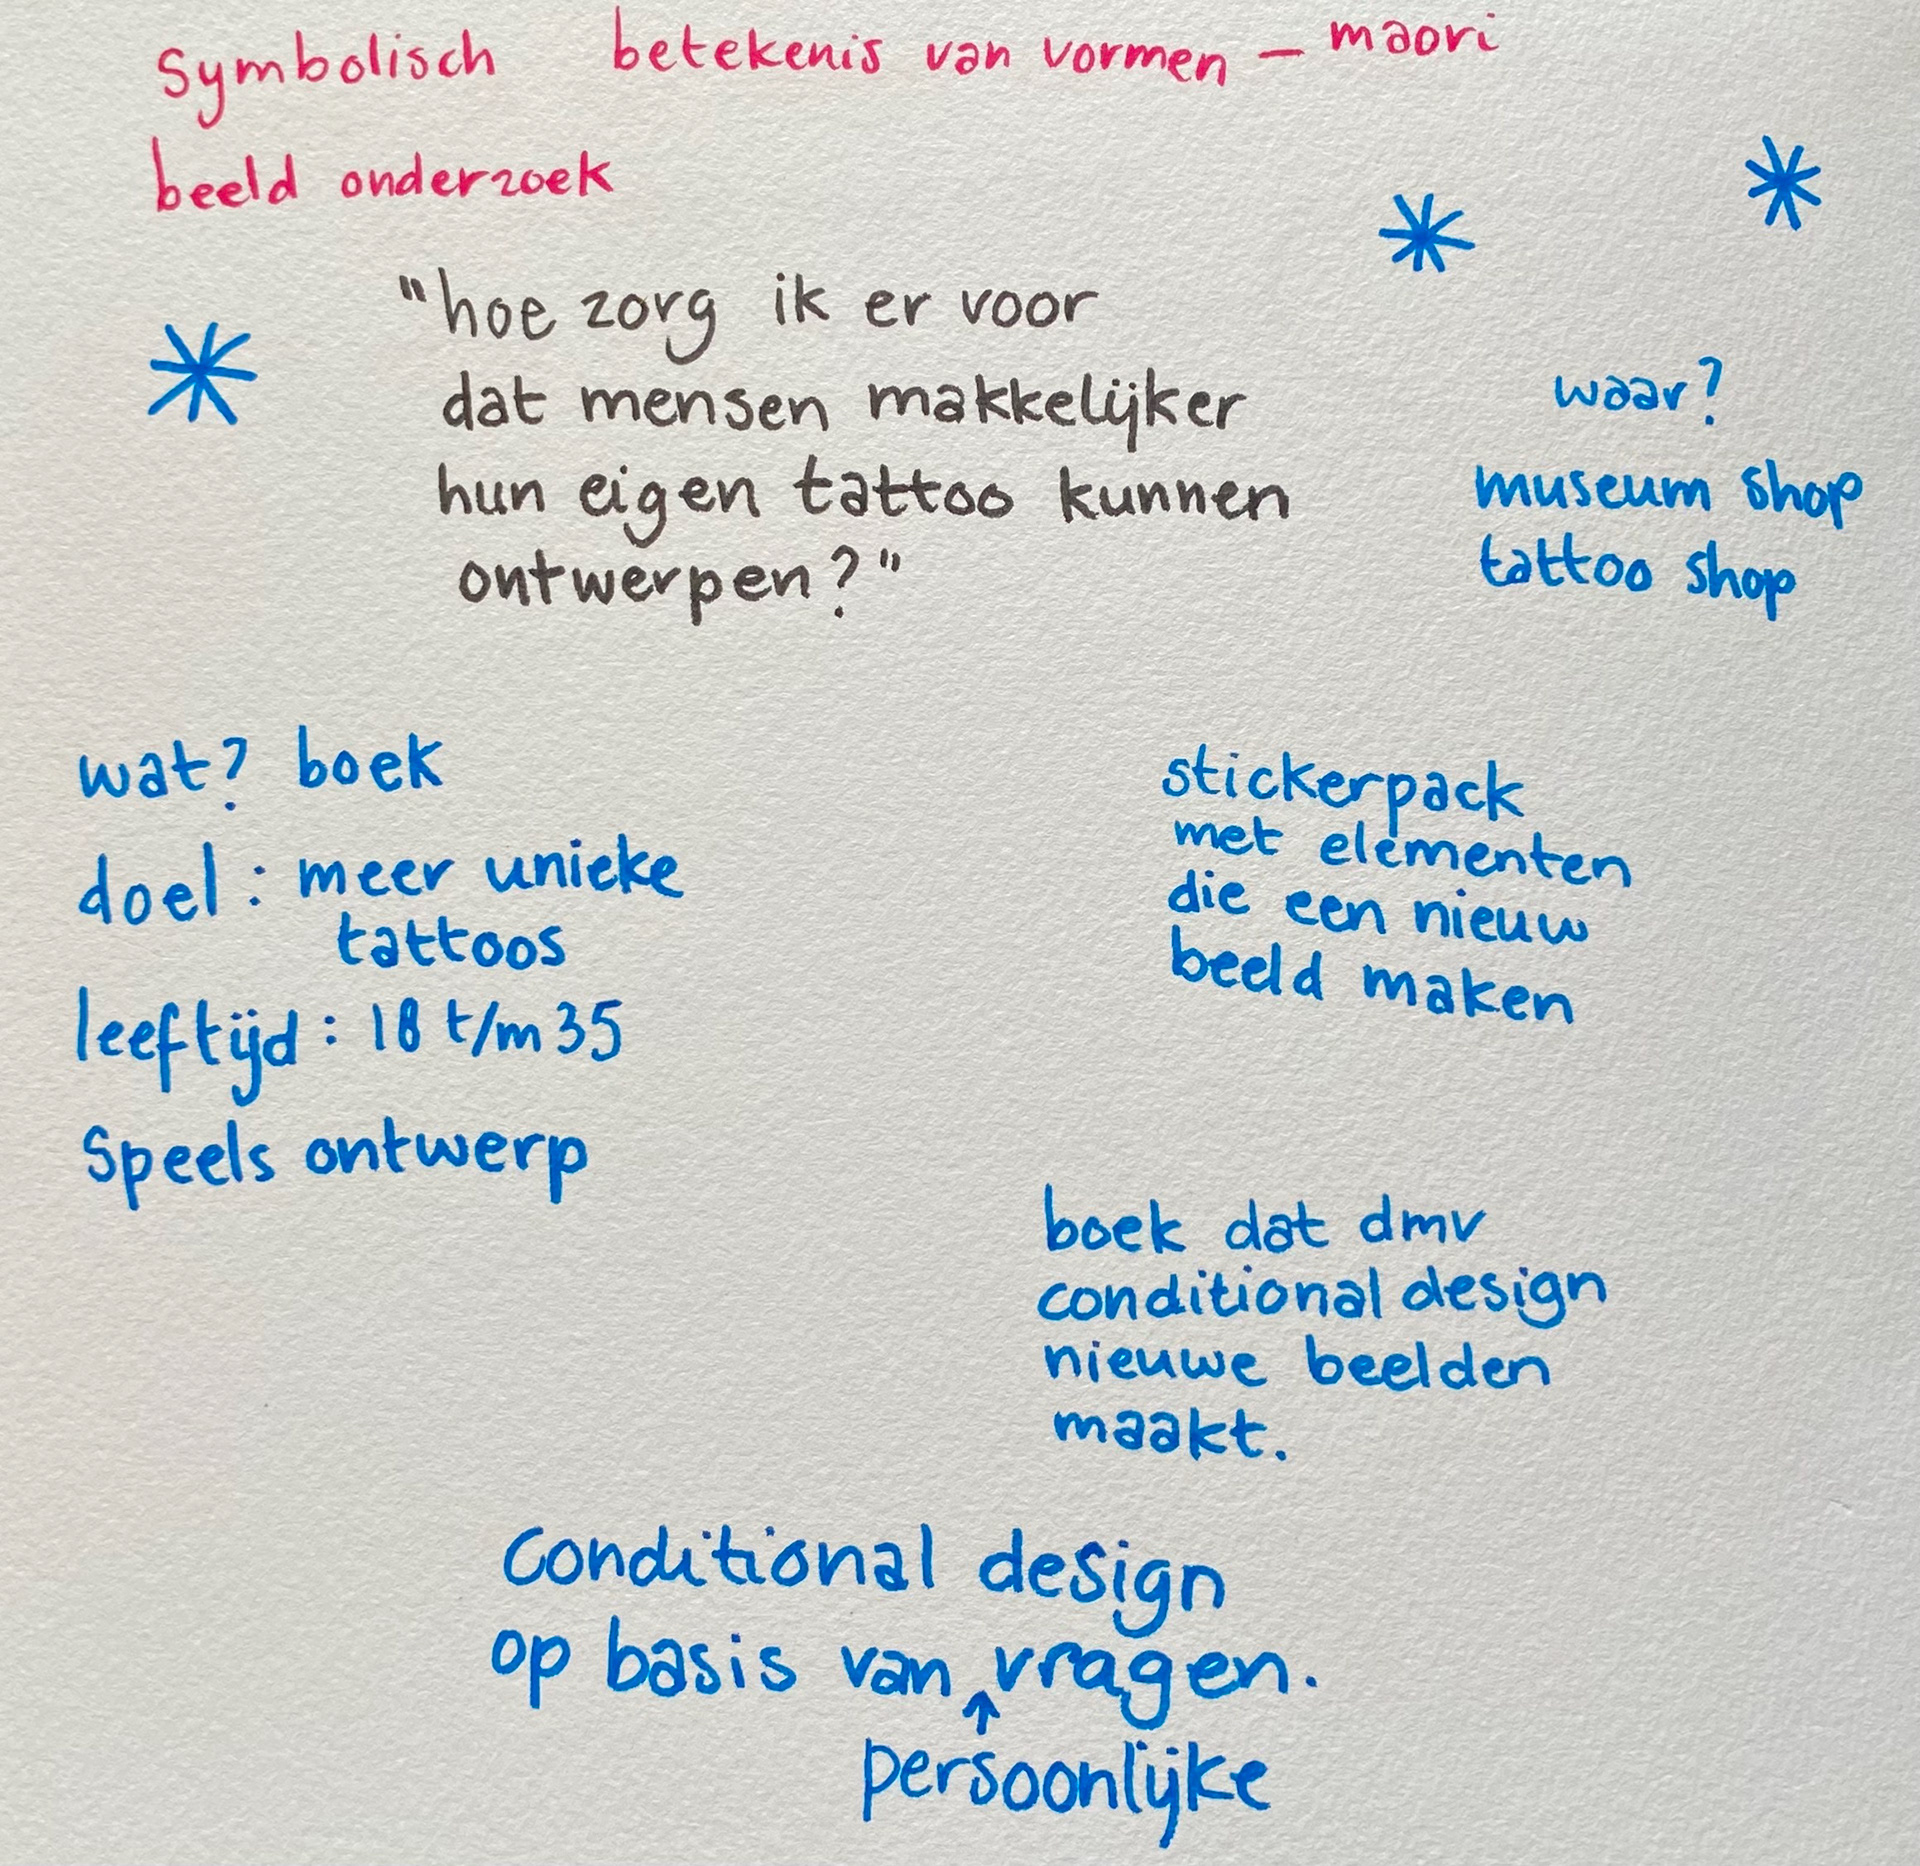 Symbolisch betekenis van vormen – maori
beeld onderzoek
"hoe zorg ik er voor
dat mensen makkelijker
hun eigen tattoo kunnen
ontwerpen?"
waar?
museum shop
tattoo shop
wat? boek
doel: meer unieke
tattoos
leeftijd: 18 t/m 35
Speels ontwerp
stickerpack
met elementen
die een nieuw
beeld maken
boek dat dmv
conditional design
nieuwe beelden
maakt.
Conditional design
op basis van vragen.
↑
persoonlijke